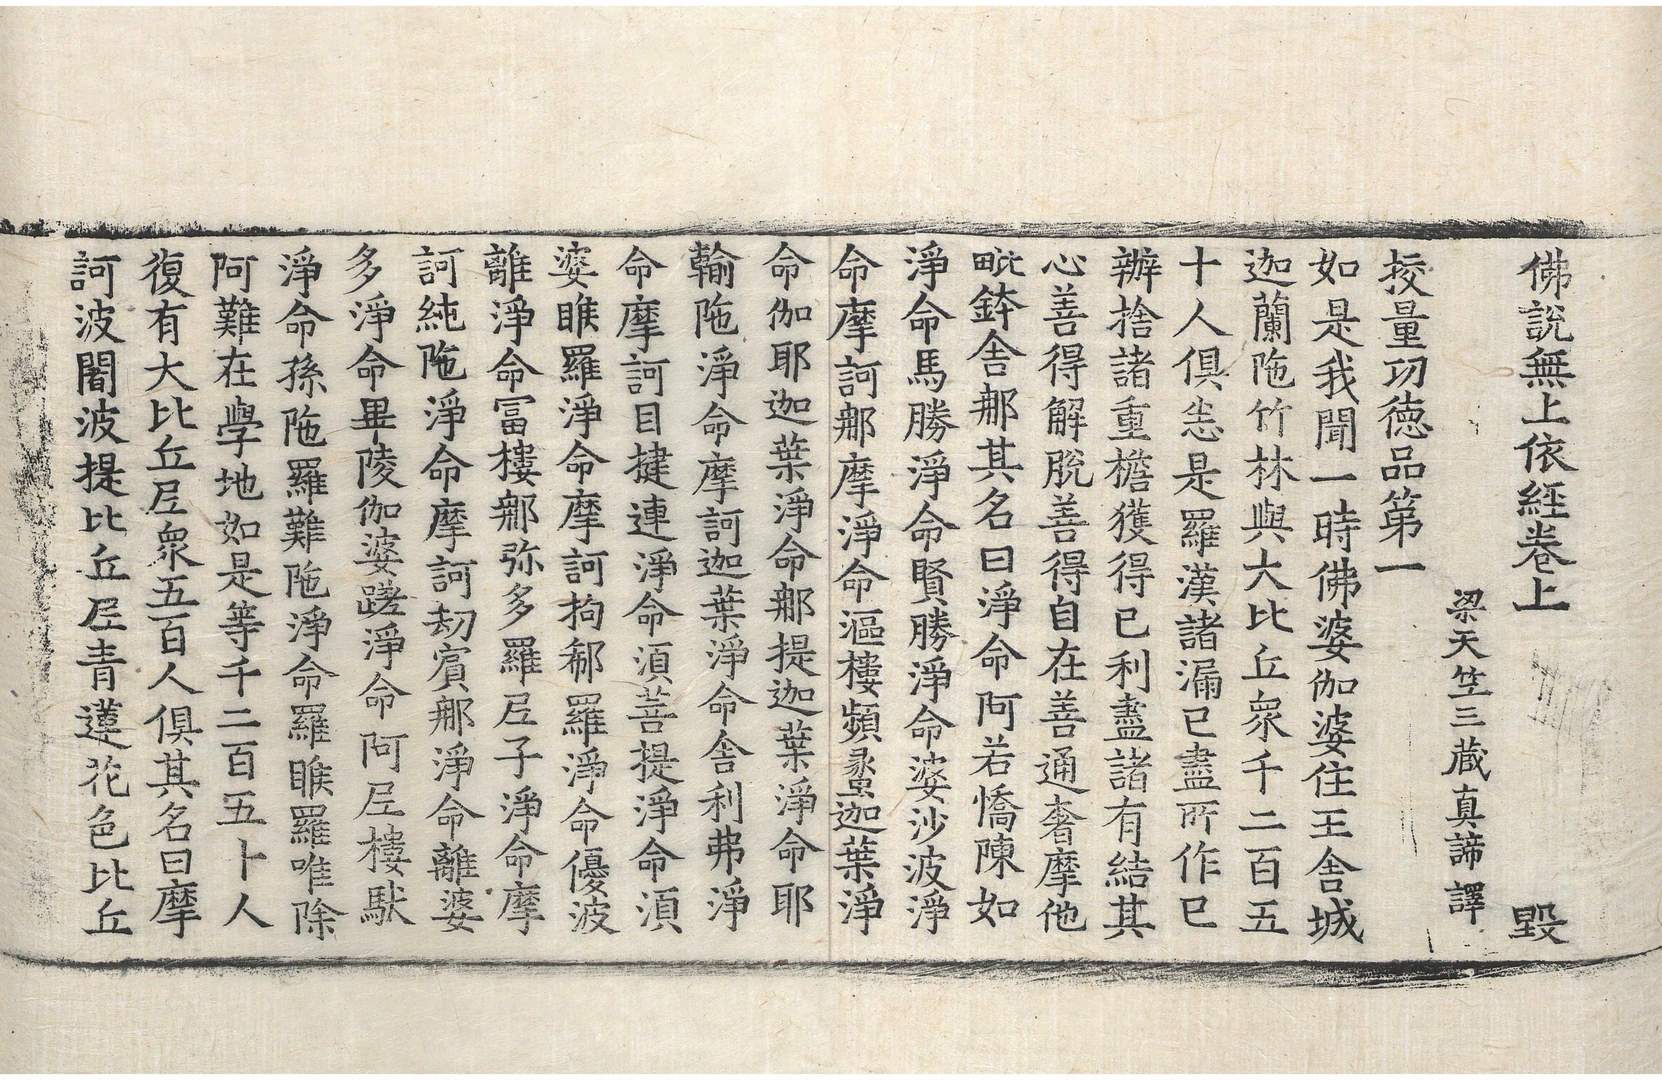 佛說無上依經卷上 毀
梁天竺三藏真諦譯
挍量功德品第一
如是我聞一時佛婆伽婆住王舍城
迦蘭陁竹林與大比丘衆千二百五
十人俱悉是羅漢諸漏已盡所作已
辦捨諸重擔獲得已利盡諸有結其
心善得解脫善得自在善通奢摩他
毗鉢舍那其名曰淨命阿若憍陳如
淨命馬勝淨命賢勝淨命婆沙波淨
命摩訶那摩淨命漚樓頻蠡迦葉淨
命伽耶迦葉淨命那提迦葉淨命耶
輸陁淨命摩訶迦葉淨命舍利弗淨
命摩訶目揵連淨命湏菩提淨命湏
婆睺羅淨命摩訶拘郗羅淨命優波
離淨命冨樓那弥多羅尼子淨命摩
訶純陁淨命摩訶劫賓那淨命離婆
多淨命畢陵伽婆蹉淨命阿尼樓馱
淨命孫陁羅難陁淨命羅睺羅唯除
阿難在學地如是等千二百五十人
復有大比丘尼衆五百人俱其名曰摩
訶波闍波提比丘尼青蓮花色比丘